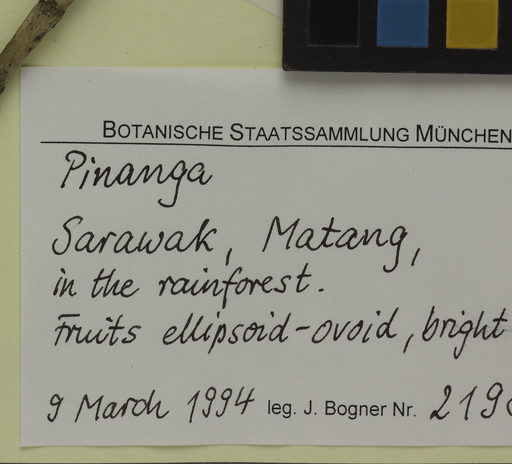 BOTANISCHE STAATSSAMMLUNG MÜNCHEN
Pinanga
Sarawak, Matang,
in the rainforest.
Fruits ellipsoid-ovoid, bright
9 March 1994 leg. J. Bogner Nr. 219